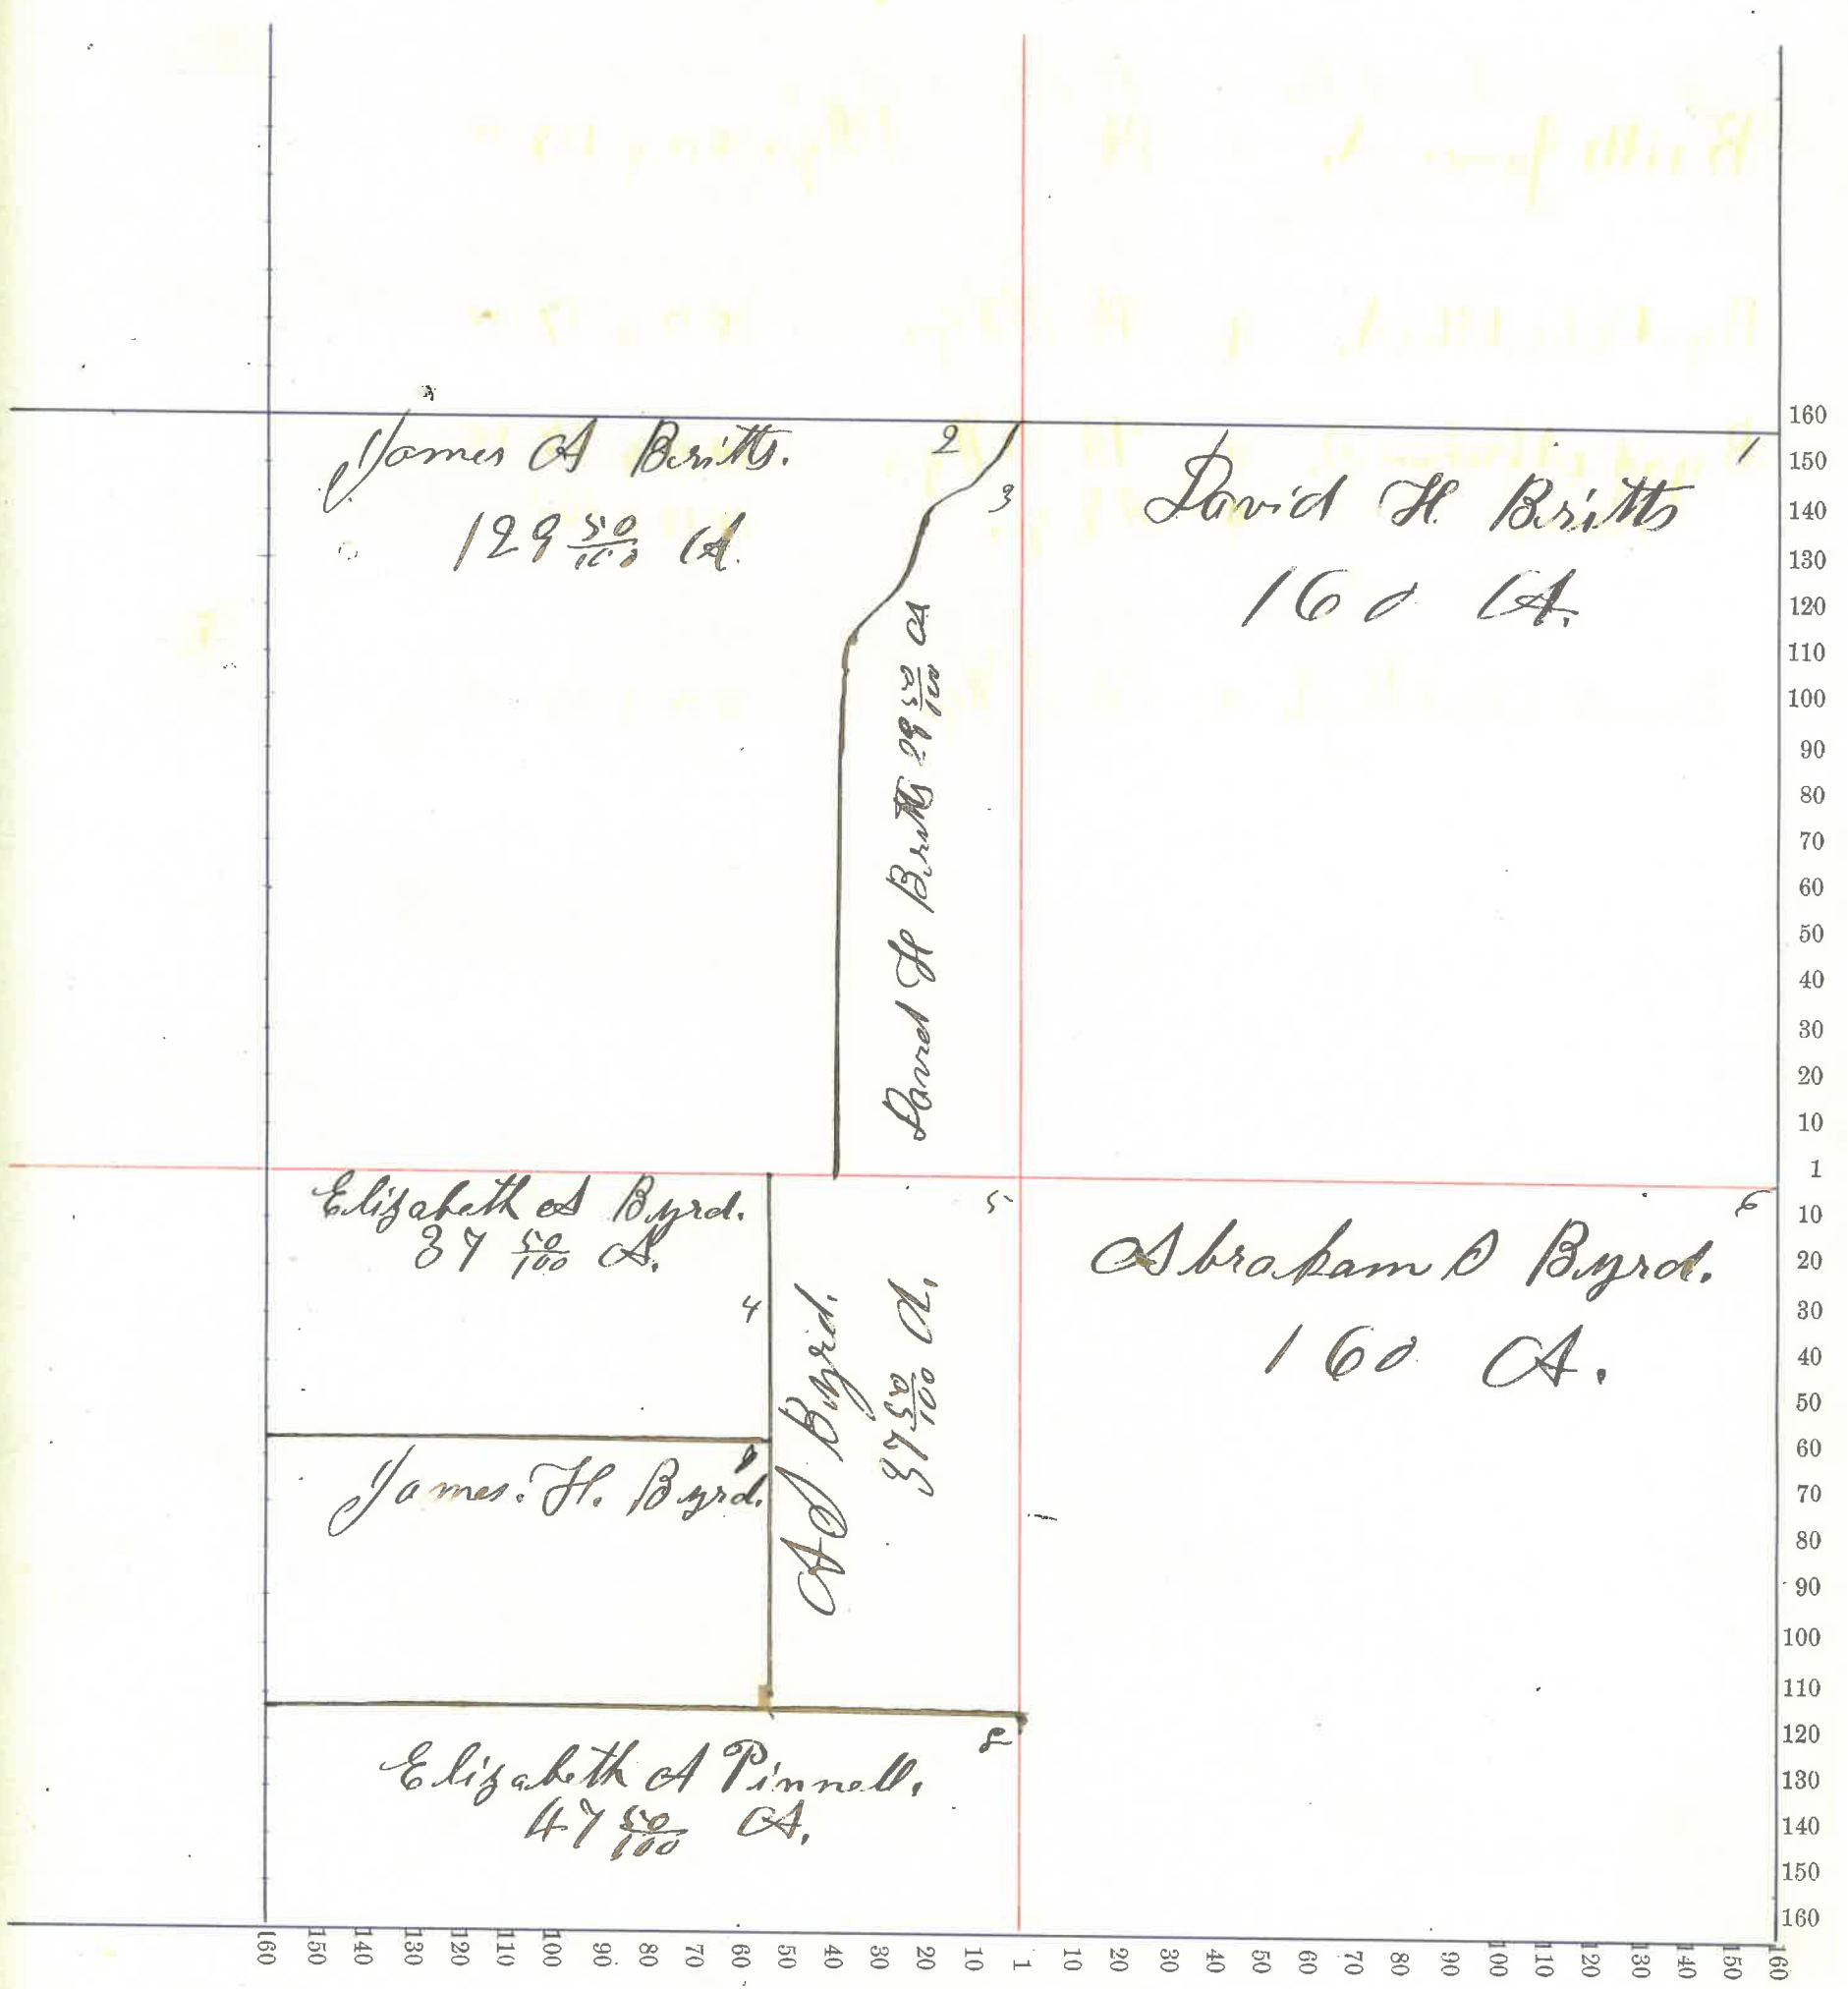 James A Britts.
129 50/100 A.
2
3
David H Britts 29 50/100 A
David H. Britts
160 A.
1
Elizabeth A Byrd.
37 50/100 A.
4
James. H. Byrd.
A S Byrd.
37 50/100 A.
5
Abraham S Byrd.
160 A.
6
Elizabeth A Pinnell.
47 50/100 A.
8
160
150
140
130
120
110
100
90
80
70
60
50
40
30
20
10
1
10
20
30
40
50
60
70
80
90
100
110
120
130
140
150
160
160 150 140 130 120 110 100 90 80 70 60 50 40 30 20 10 1 10 20 30 40 50 60 70 80 90 100 110 120 130 140 150 160